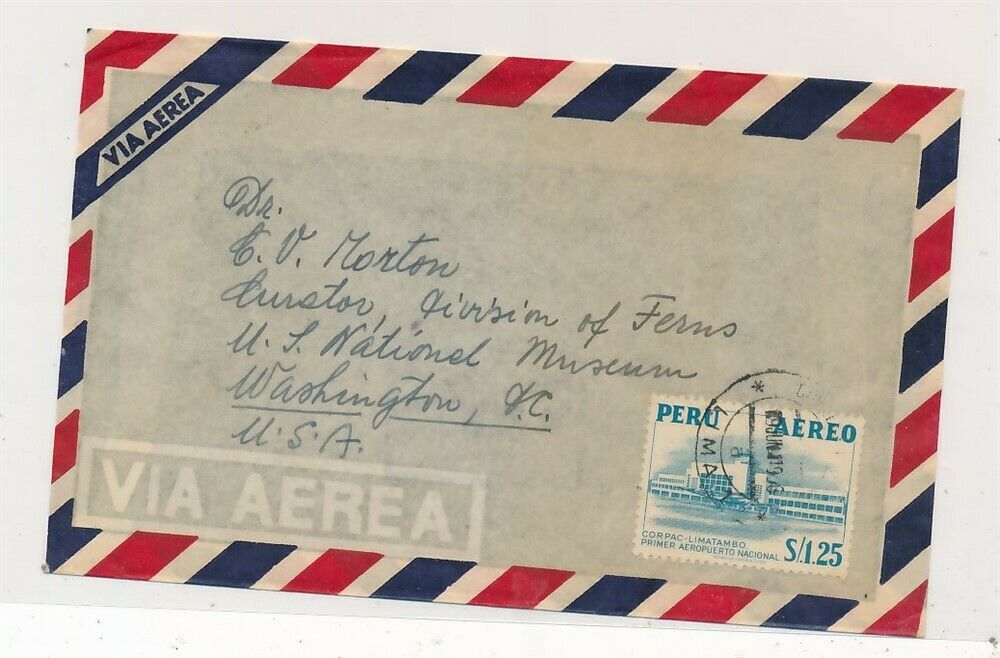 VIA AEREA
Dr.
C. V. Morton
Curator, Division of Ferns
U. S. National Museum
Washington, D.C.
U.S.A.
VIA AEREA
PERU AEREO
LIMA
CORPAC-LIMATAMBO
PRIMER AEROPUERTO NACIONAL
S/.1.25